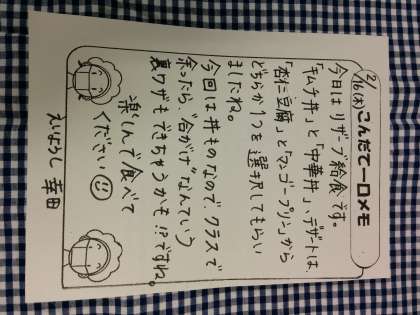 2/16(木)こんだて一口メモ
今日はリザーブ給食です。
「キムチ丼」と「中華丼」、デザートは、
「杏仁豆腐」と「マンゴープリン」から
どちらか1つを選択してもらい
ましたね。
今回は丼ものなので、クラスで
余ったら、"合がけ"なんていう
裏ワザもできちゃうかも!?ですね。
楽しんで食べて
ください
えいようし 幸田